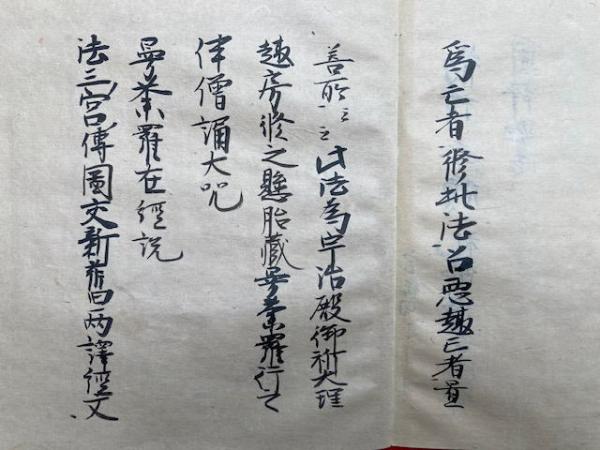 爲亡者修此法召悪趣亡者置
善所云云此法為宇治殿御祈大理
趣房修之懸胎蔵曼荼羅行之
伴僧誦大咒
曼荼羅在經説
法三宮傳圖交新舊両譯經文